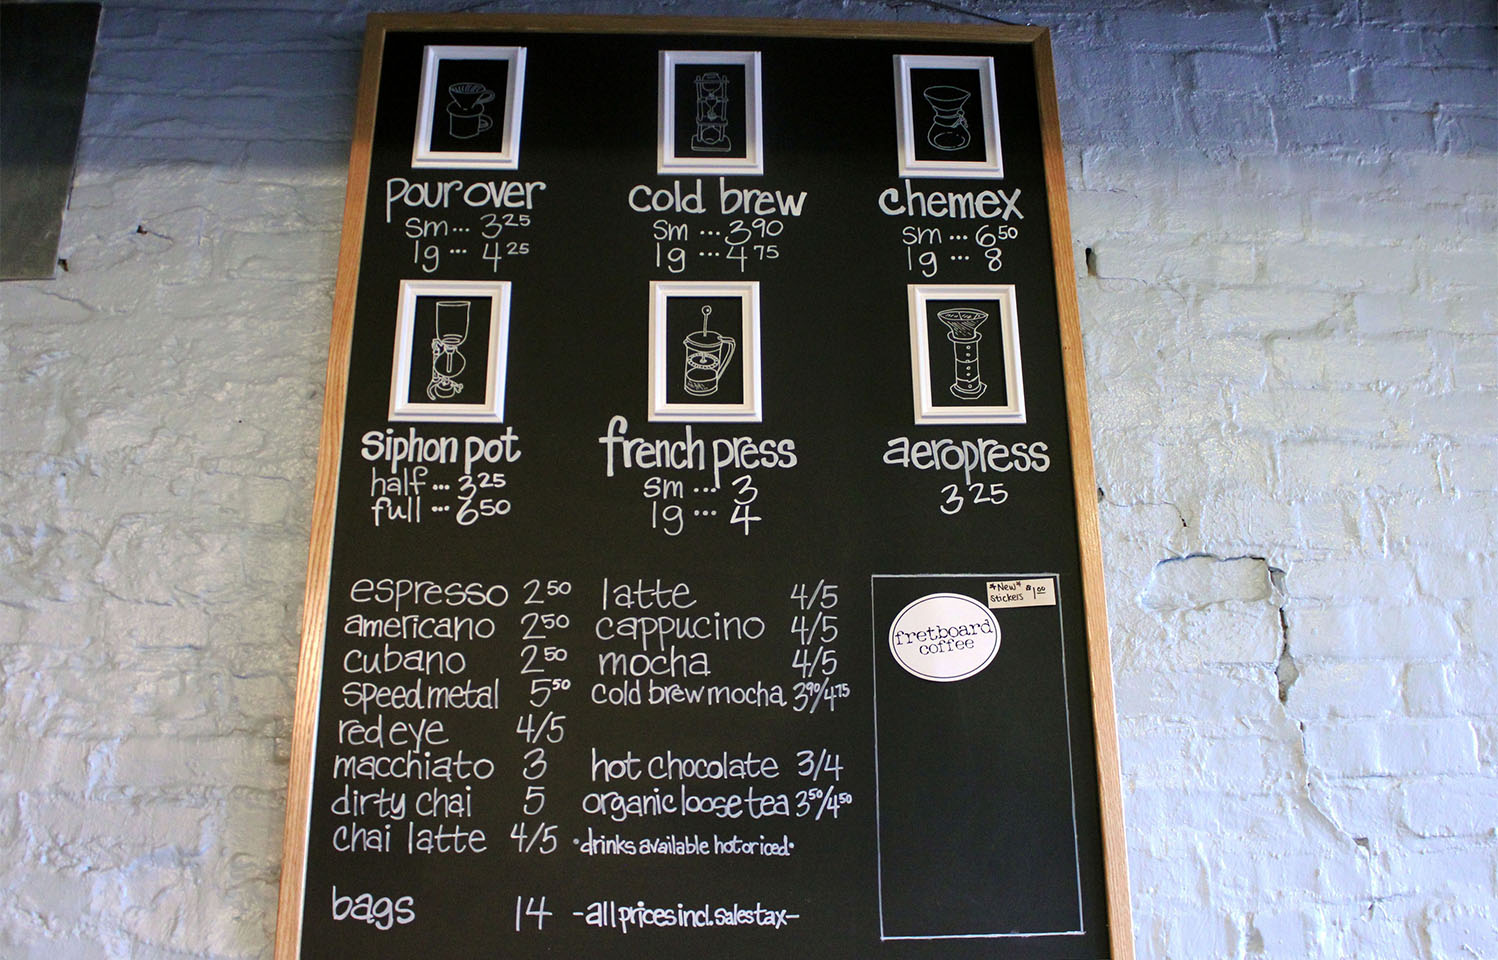 pour over
sm... 3.25
lg... 4.25
cold brew
sm... 3.90
lg... 4.75
chemex
sm... 6.50
lg... 8
siphon pot
half... 3.25
full... 6.50
french press
sm... 3
lg... 4
aeropress
3.25
espresso 2.50
americano 2.50
cubano 2.50
speed metal 5.50
red eye 4/5
macchiato 3
dirty chai 5
chai latte 4/5
bags 14
latte 4/5
cappucino 4/5
mocha 4/5
cold brew mocha 3.90/4.75
hot chocolate 3/4
organic loose tea 3.50/4.50
•drinks available hot or iced•
-all prices incl. sales tax-
*New* $1.00
Stickers
fretboard
coffee